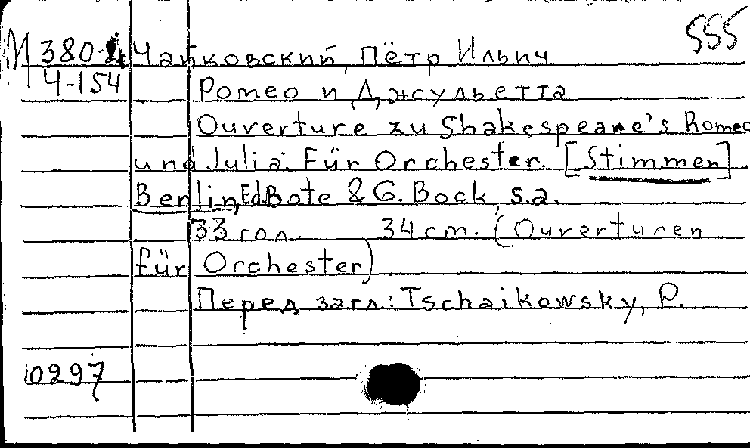 555
М 380-4 Чайковский, Пётр Ильич
Ч-154 Ромео и Джульетта
Ouverture zu Shakespeare's Romeo
und Julia. Für Orchester. [Stimmen]
Berlin, Ed. Bote & G. Bock, s.a.
33 гол. 34 cm. (Ouverturen
für Orchester)
Перед загл.: Tschaikowsky, P.
0297